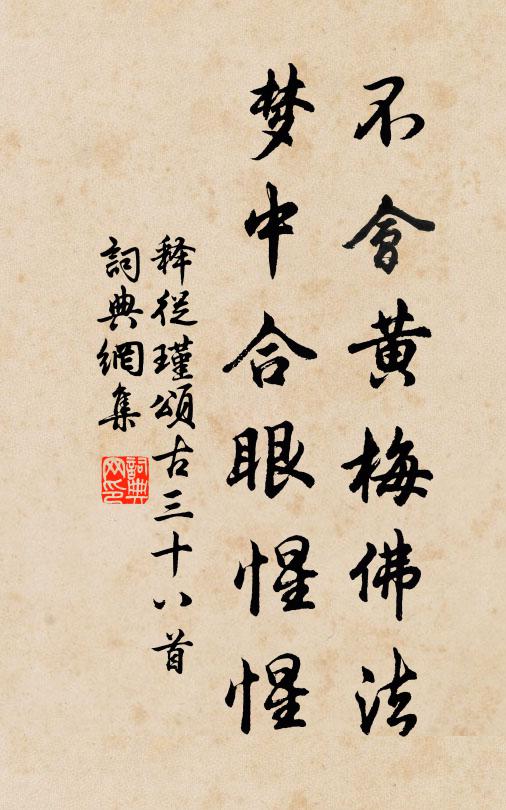 不會黄梅佛法
梦中合眼惺惺
释從瑾頌古三十八首
詞典網集
詞典网印